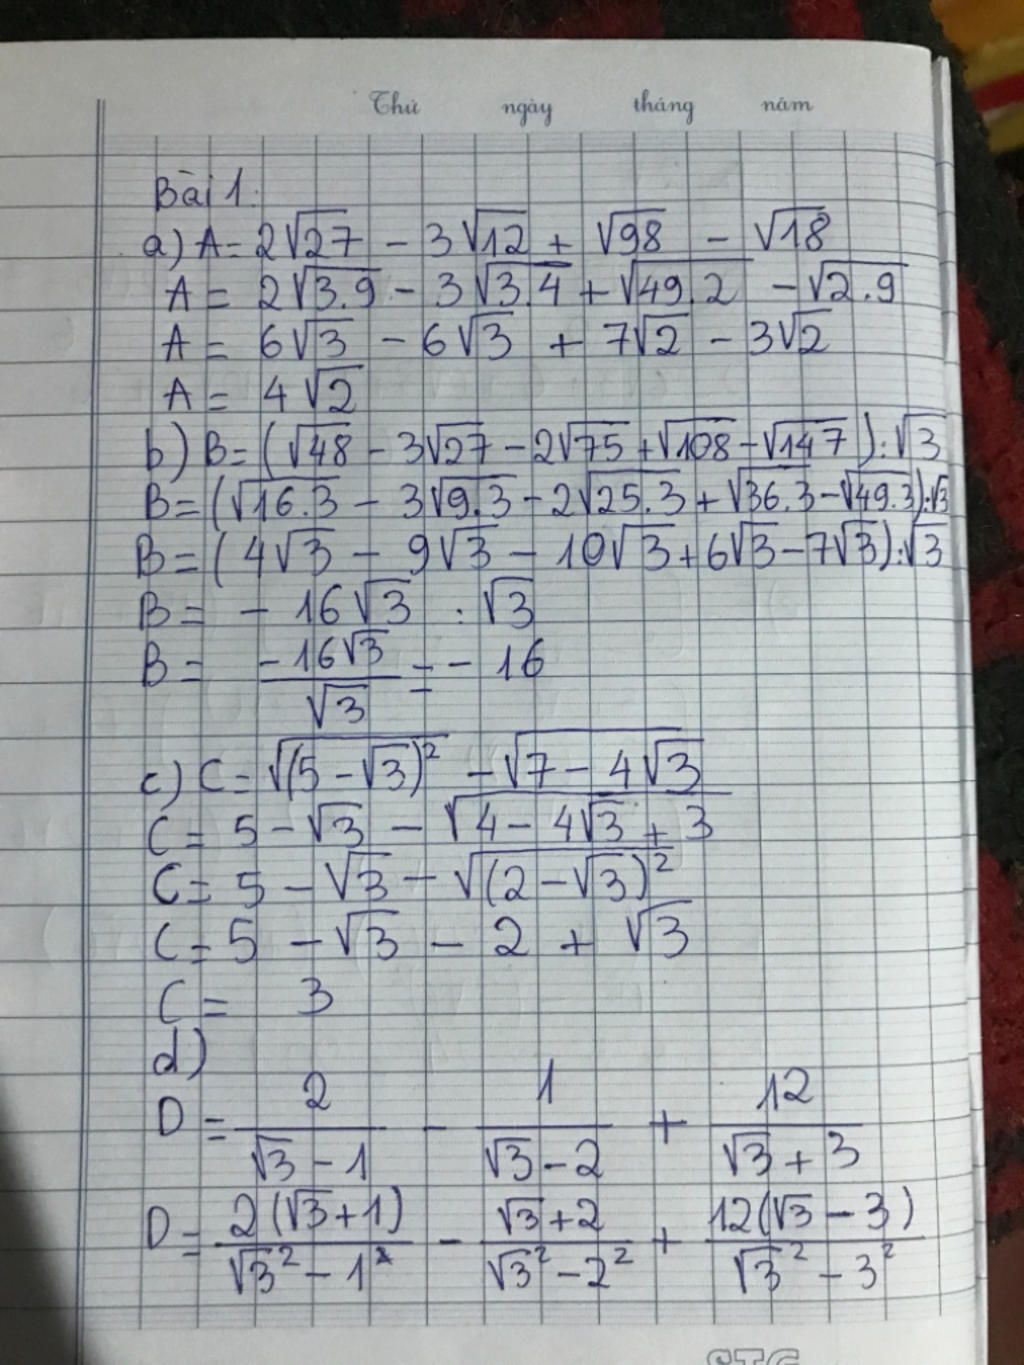 Thứ ngày tháng năm
Bài 1.
a) A = 2√27 - 3√12 + √98 - √18
A = 2√3.9 - 3√3.4 + √49.2 - √2.9
A = 6√3 - 6√3 + 7√2 - 3√2
A = 4√2
b) B = (√48 - 3√27 - 2√75 + √108 - √147) : √3
B = (√16.3 - 3√9.3 - 2√25.3 + √36.3 - √49.3) : √3
B = (4√3 - 9√3 - 10√3 + 6√3 - 7√3) : √3
B = - 16√3 : √3
B = -16√3/√3 = - 16
c) C = √(5 - √3)² - √7 - 4√3
C = 5 - √3 - √4 - 4√3 + 3
C = 5 - √3 - √(2 - √3)²
C = 5 - √3 - 2 + √3
C = 3
d)
D = 2/(√3 - 1) - 1/(√3 - 2) + 12/(√3 + 3)
D = 2(√3 + 1)/(√3² - 1²) - (√3 + 2)/(√3² - 2²) + 12(√3 - 3)/(√3² - 3²)